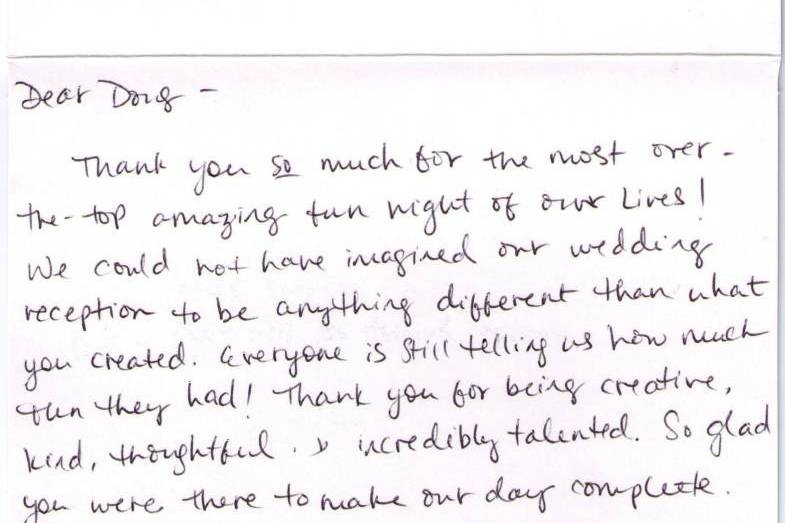 Dear Doug -
Thank you so much for the most over-
the-top amazing fun night of our lives!
We could not have imagined our wedding
reception to be anything different than what
you created. Everyone is still telling us how much
fun they had! Thank you for being creative,
kind, thoughtful, & incredibly talented. So glad
you were there to make our day complete.